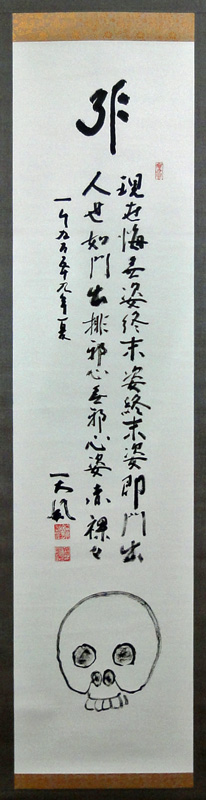 現在悔無姿終末姿終末姿即門出
人世如門出排邪心無邪心姿赤裸々
一千九百五十九年夏